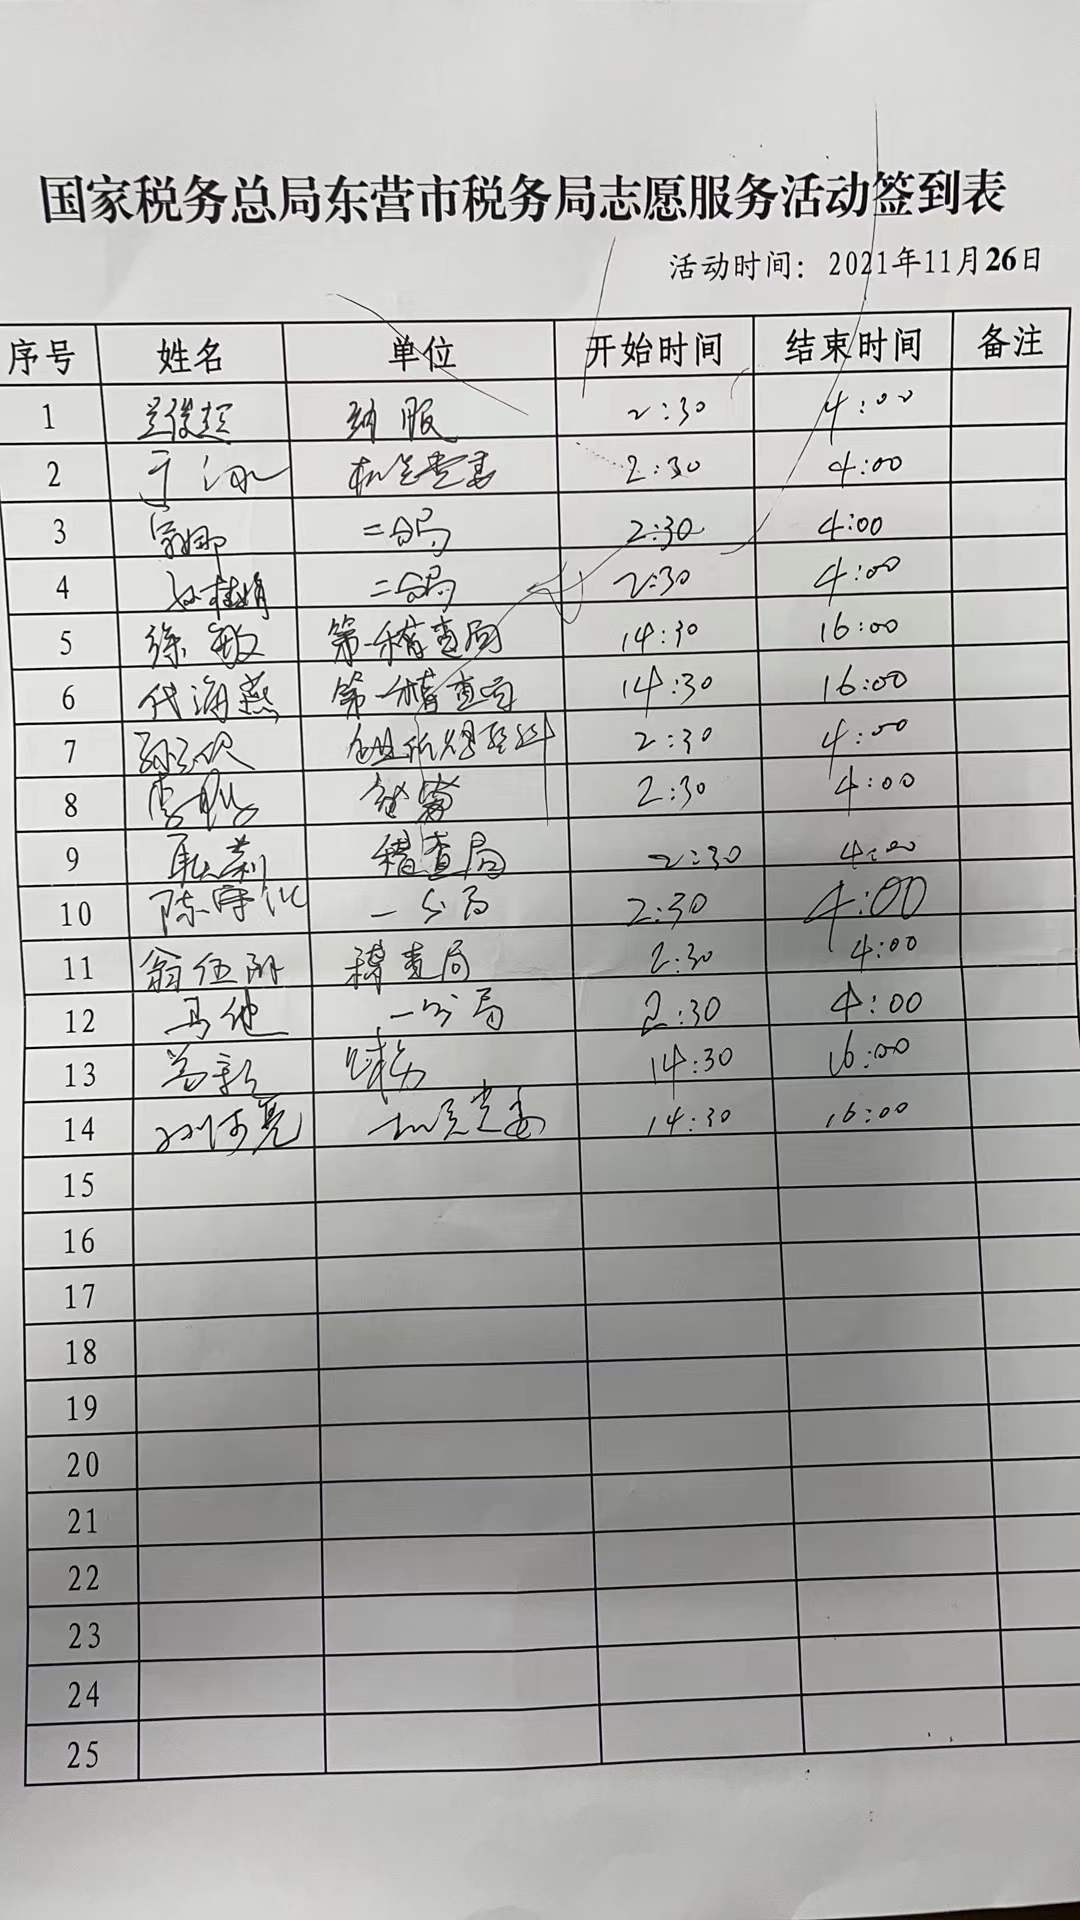 国家税务总局东营市税务局志愿服务活动签到表
活动时间：2021年11月26日
序号 姓名 单位 开始时间 结束时间 备注
1 纳服 2:30 4:00
2 于 机关党委 2:30 4:00
3 二分局 2:30 4:00
4 孙桂娟 二分局 2:30 4:00
5 徐敏 第一稽查局 14:30 16:00
6 代海燕 第一稽查局 14:30 16:00
7 2:30 4:00
8 李 2:30 4:00
9 耿莉 稽查局 2:30 4:00
10 陈 一分局 2:30 4:00
11 翁伍 稽查局 2:30 4:00
12 马 一分局 2:30 4:00
13 财务 14:30 16:00
14 亮 机关党委 14:30 16:00
15
16
17
18
19
20
21
22
23
24
25